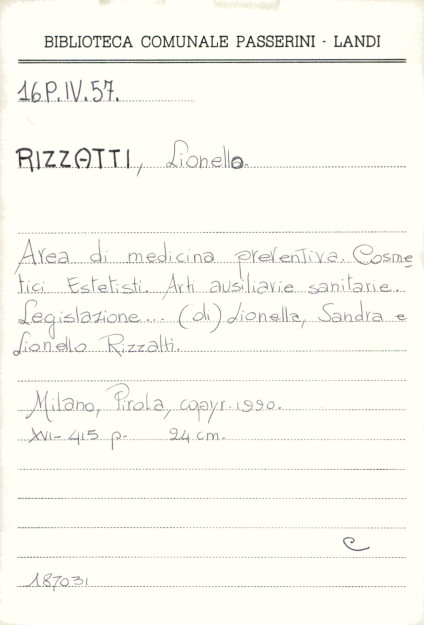 BIBLIOTECA COMUNALE PASSERINI - LANDI
16P.IV.57.
RIZZATTI, Lionello.
Area di medicina preventiva. Cosme
tici Estetisti. Arti ausiliarie sanitarie..
Legislazione... (di) Lionella, Sandra e
Lionello Rizzatti.
Milano, Pirola, copyr. 1990.
XVI- 415 p. 24 cm.
C
187031